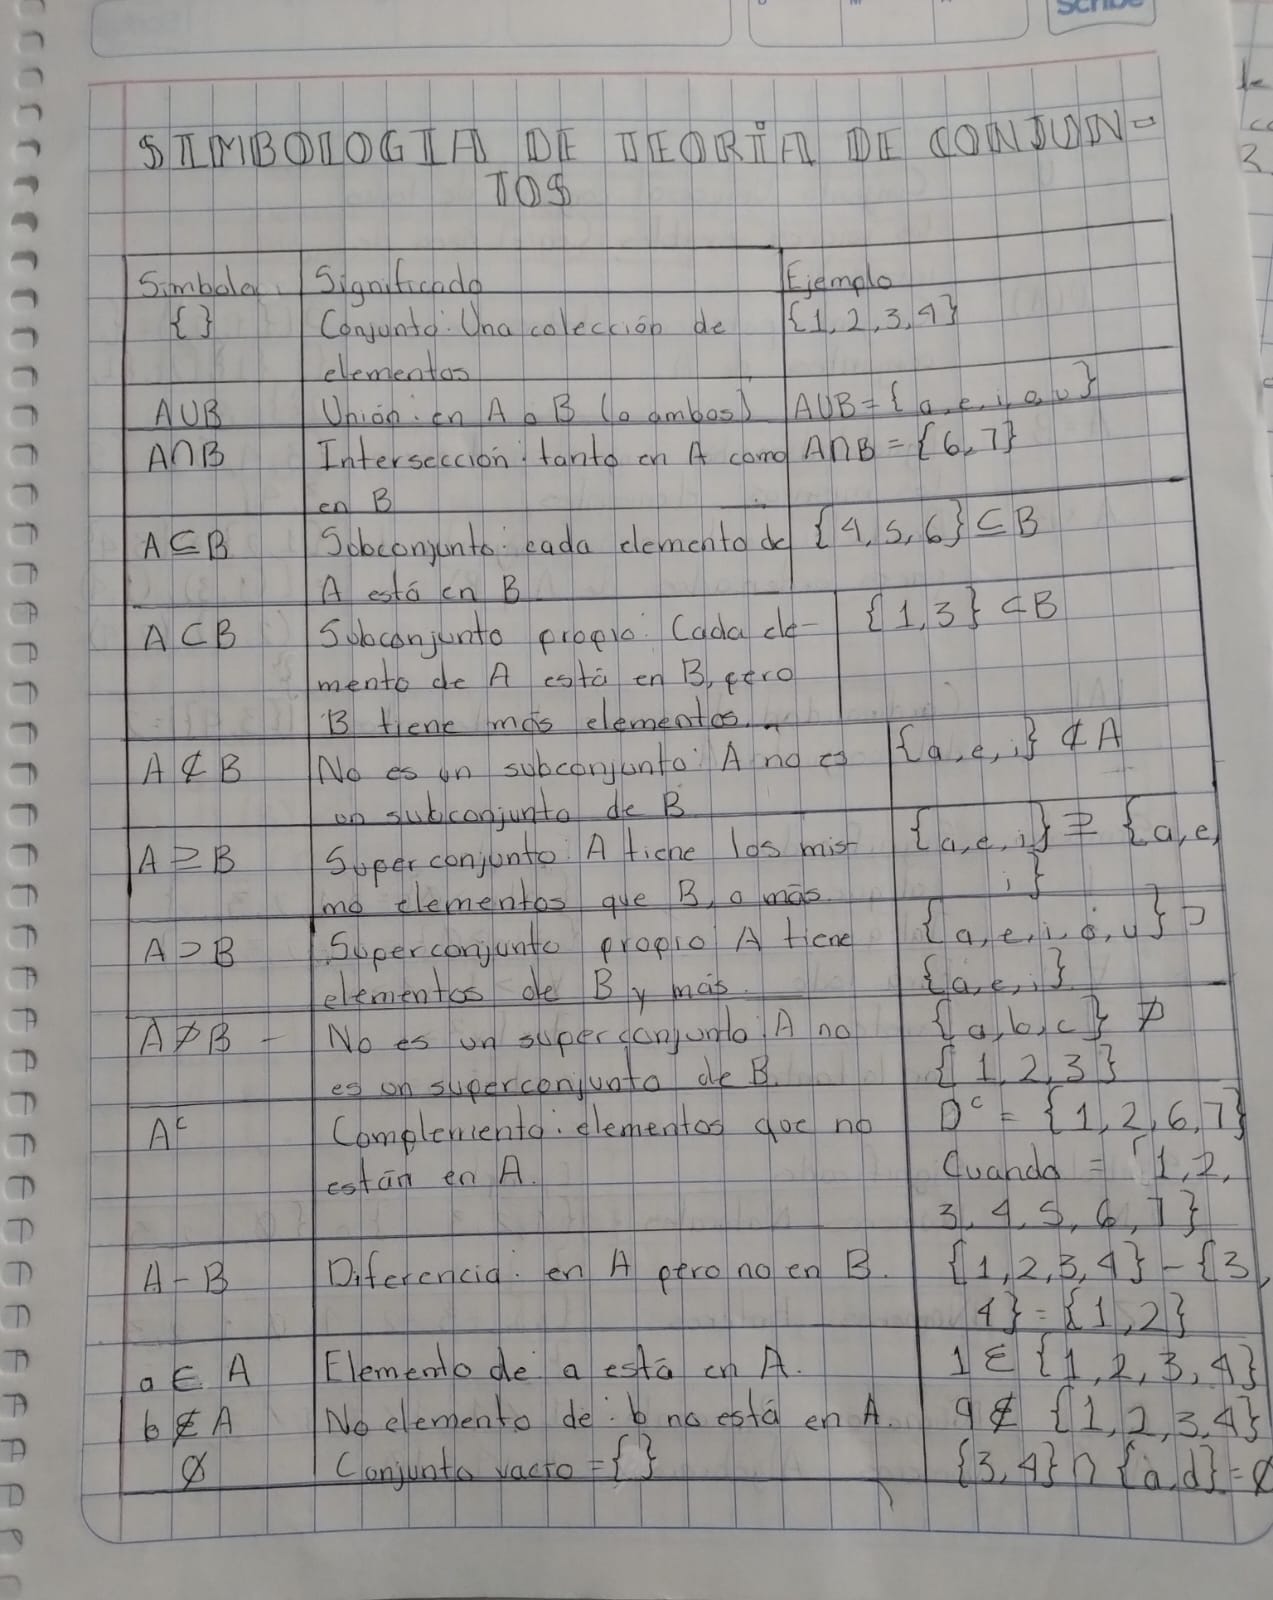 Scribe
SIMBOLOGIA DE TEORÍA DE CONJUN-
TOS
Simbolo Significado Ejemplo
{ } Conjunto: Una colección de {1, 2, 3, 4}
elementos
A∪B Unión: en A o B (o ambos) A∪B = {a, e, i, o, u}
A∩B Intersección: tanto en A como A∩B = {6, 7}
en B
A⊆B Subconjunto: cada elemento de {4, 5, 6} ⊆ B
A está en B
A⊂B Subconjunto propio: Cada ele- {1, 3} ⊂ B
mento de A está en B, pero
B tiene más elementos.
A⊄B No es un subconjunto: A no es {a, e, i} ⊄ A
un subconjunto de B
A⊇B Superconjunto: A tiene los mis- {a, e, i} ⊇ {a, e,
mo elementos que B, o más i}
A⊃B Superconjunto propio A tiene {a, e, i, o, u} ⊃
elementos de B y más. {a, e, i}
A⊅B - No es un superconjunto: A no {a, b, c} ⊅
es un superconjunto de B. {1, 2, 3}
Aᶜ Complemento: elementos que no Dᶜ = {1, 2, 6, 7}
están en A. Cuando = {1, 2,
3, 4, 5, 6, 7}
A-B Diferencia: en A pero no en B. {1, 2, 3, 4} - {3,
4} = {1, 2}
a ∈ A Elemento de: a está en A. 1 ∈ {1, 2, 3, 4}
b ∉ A No elemento de: b no está en A. 9 ∉ {1, 2, 3, 4}
∅ Conjunto vacío = { } {3, 4} ∩ {a, d} = ∅